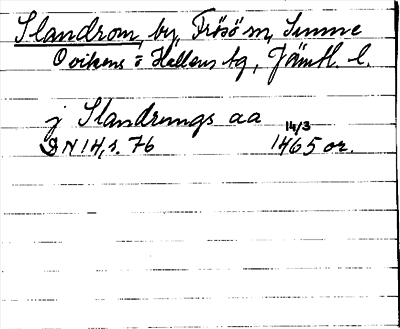 Slandrom, by, Frösö sn, Sunne
Ovikens o Hallens tg, Jämtl. l.
j Slandrungs aa
14/3
DN 14, s. 76 1465 or.